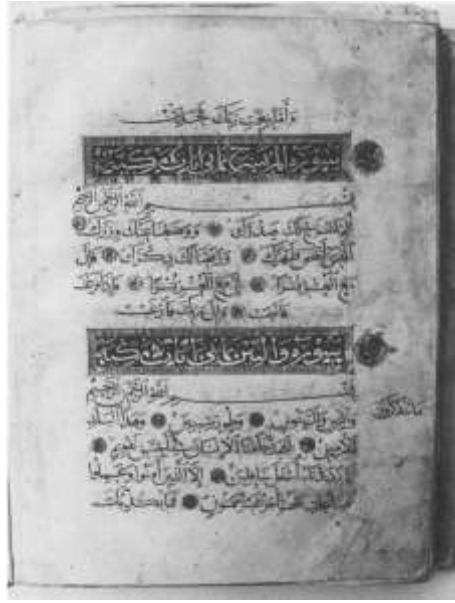 وأما بنعمة ربك فحدث
سورة ألم نشرح ثماني آيات مكية
بسم الله الرحمن الرحيم
ألم نشرح لك صدرك ووضعنا عنك وزرك
الذي أنقض ظهرك ورفعنا لك ذكرك فإن
مع العسر يسرا إن مع العسر يسرا فإذا فرغت
فانصب وإلى ربك فارغب
سورة والتين ثماني آيات مكية
بسم الله الرحمن الرحيم
والتين والزيتون وطور سينين وهذا البلد
الأمين لقد خلقنا الإنسان في أحسن تقويم
ثم رددناه أسفل سافلين إلا الذين آمنوا وعملوا
الصالحات فلهم أجر غير ممنون فما يكذبك